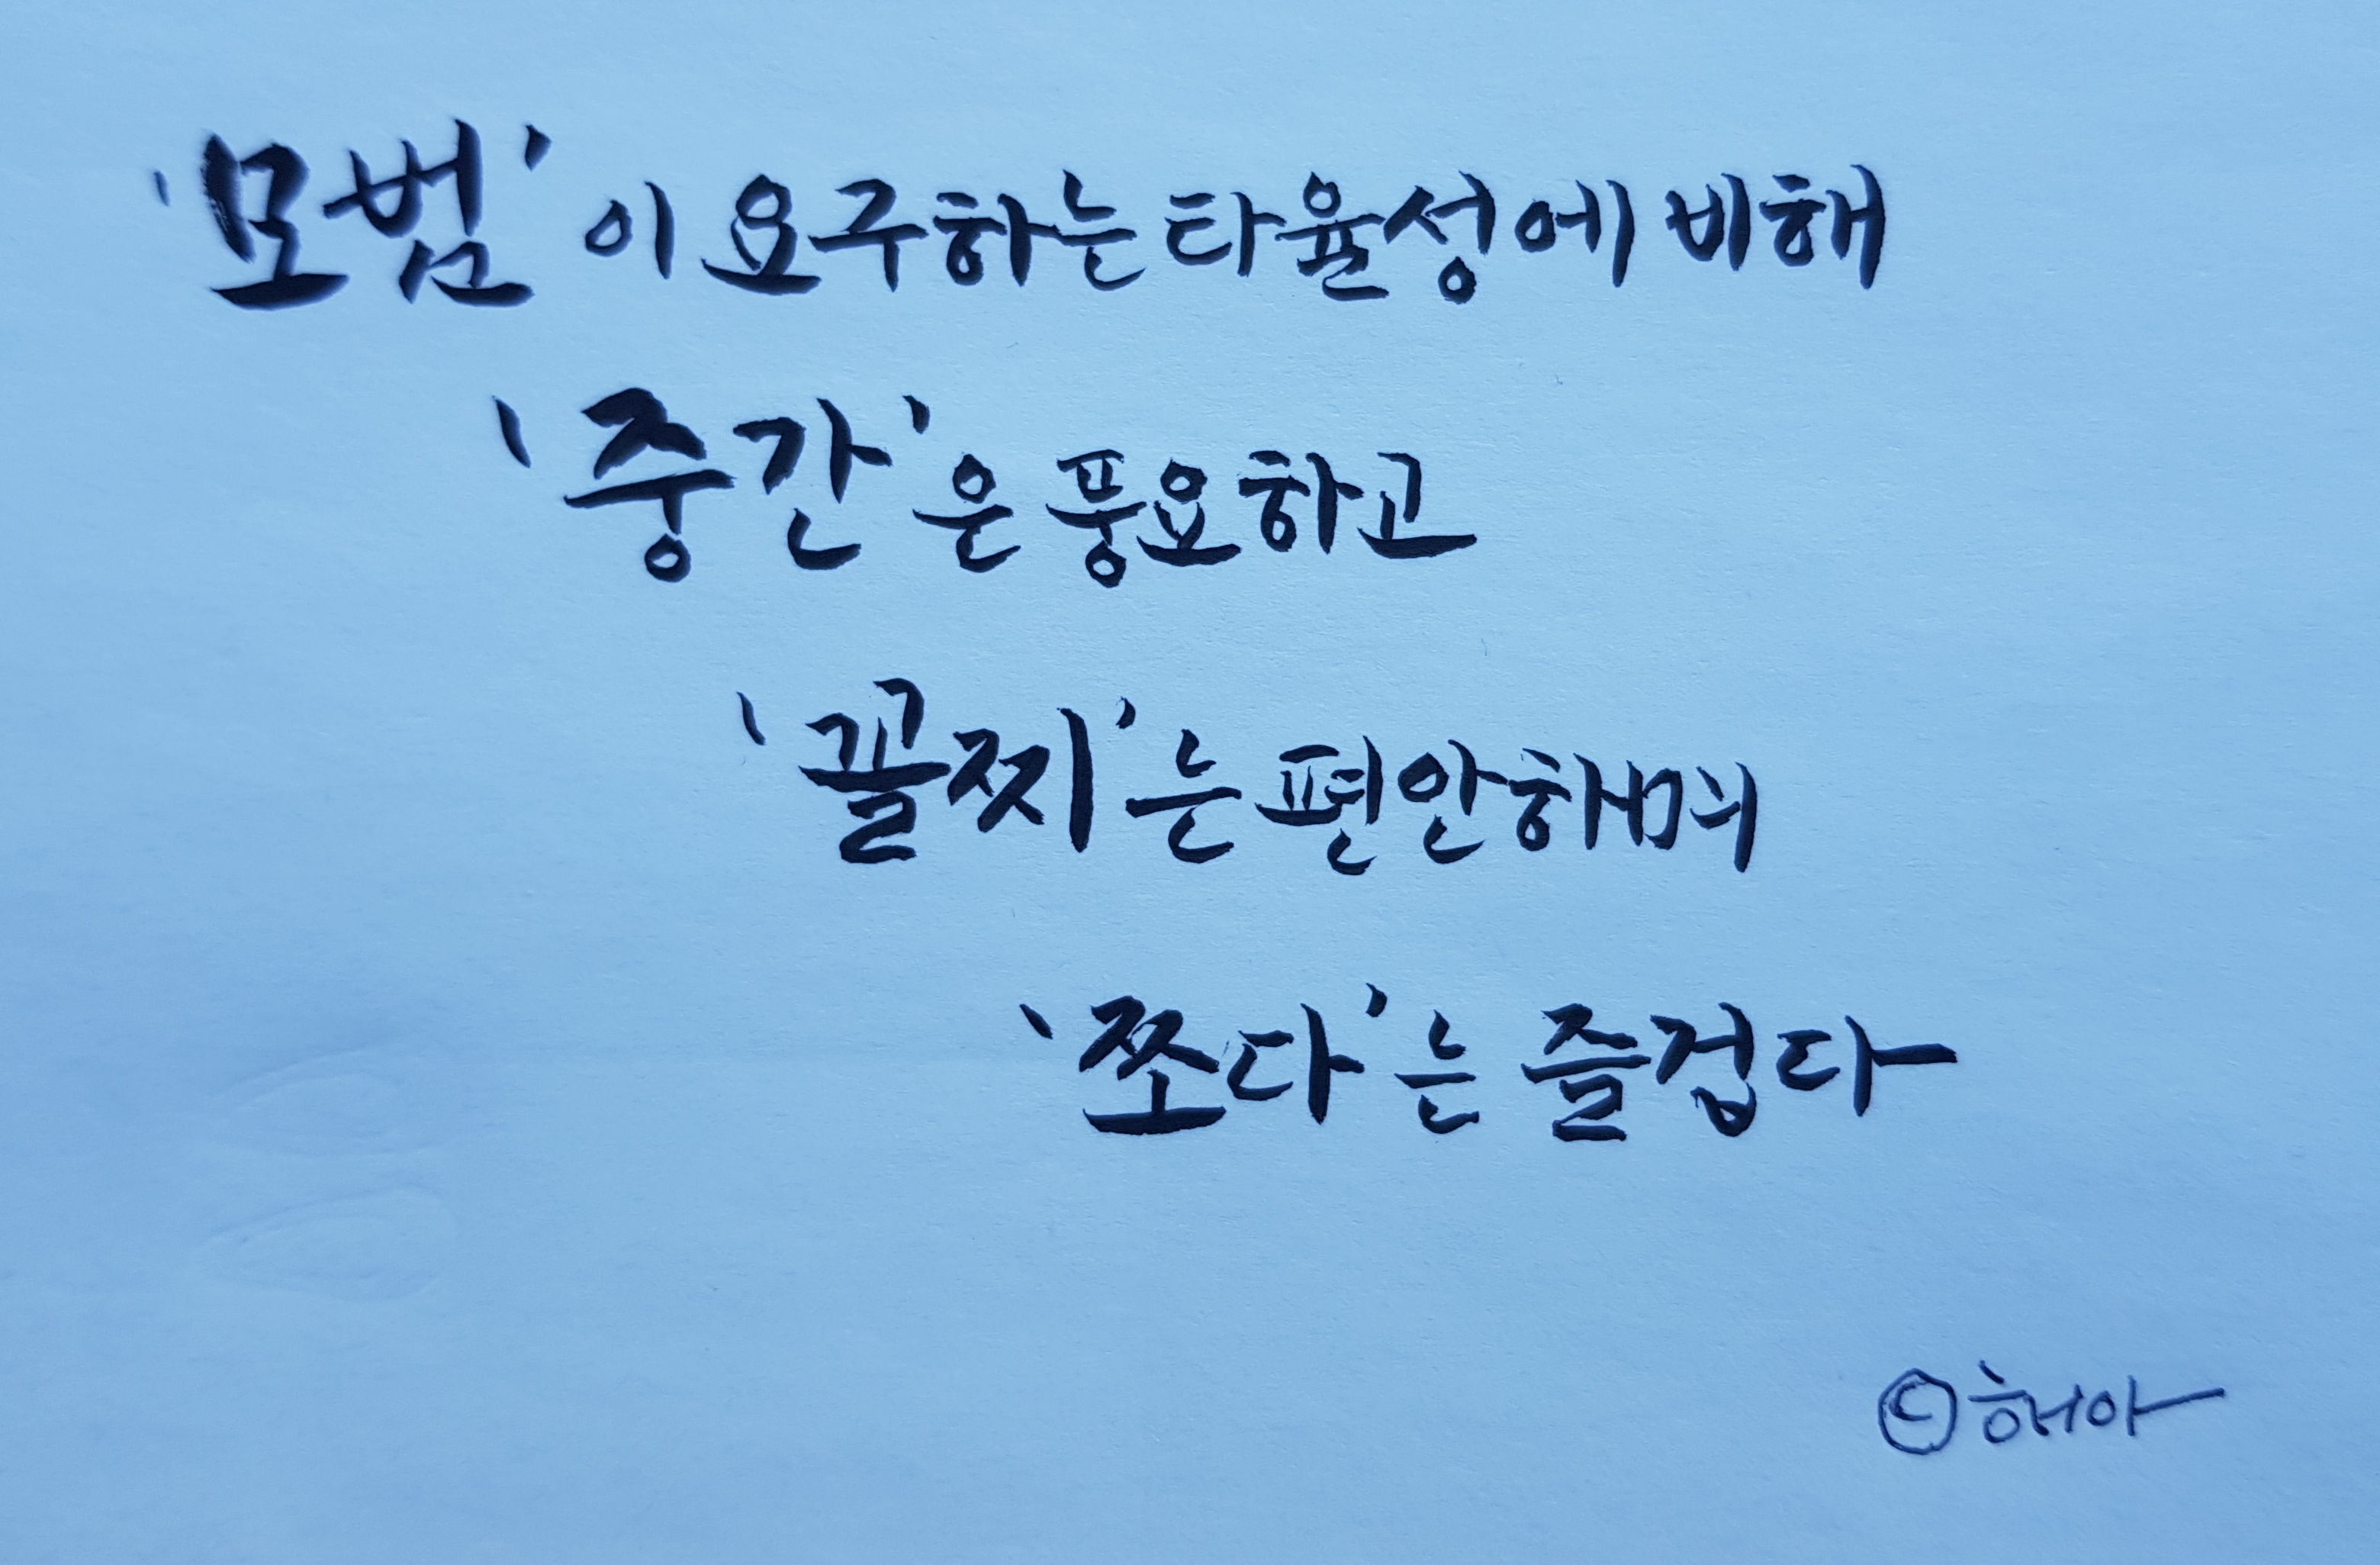 '모범'이 요구하는 타율성에 비해
'중간'은 풍요하고
'꼴찌'는 편안하며
'쪼다'는 즐겁다
©해아